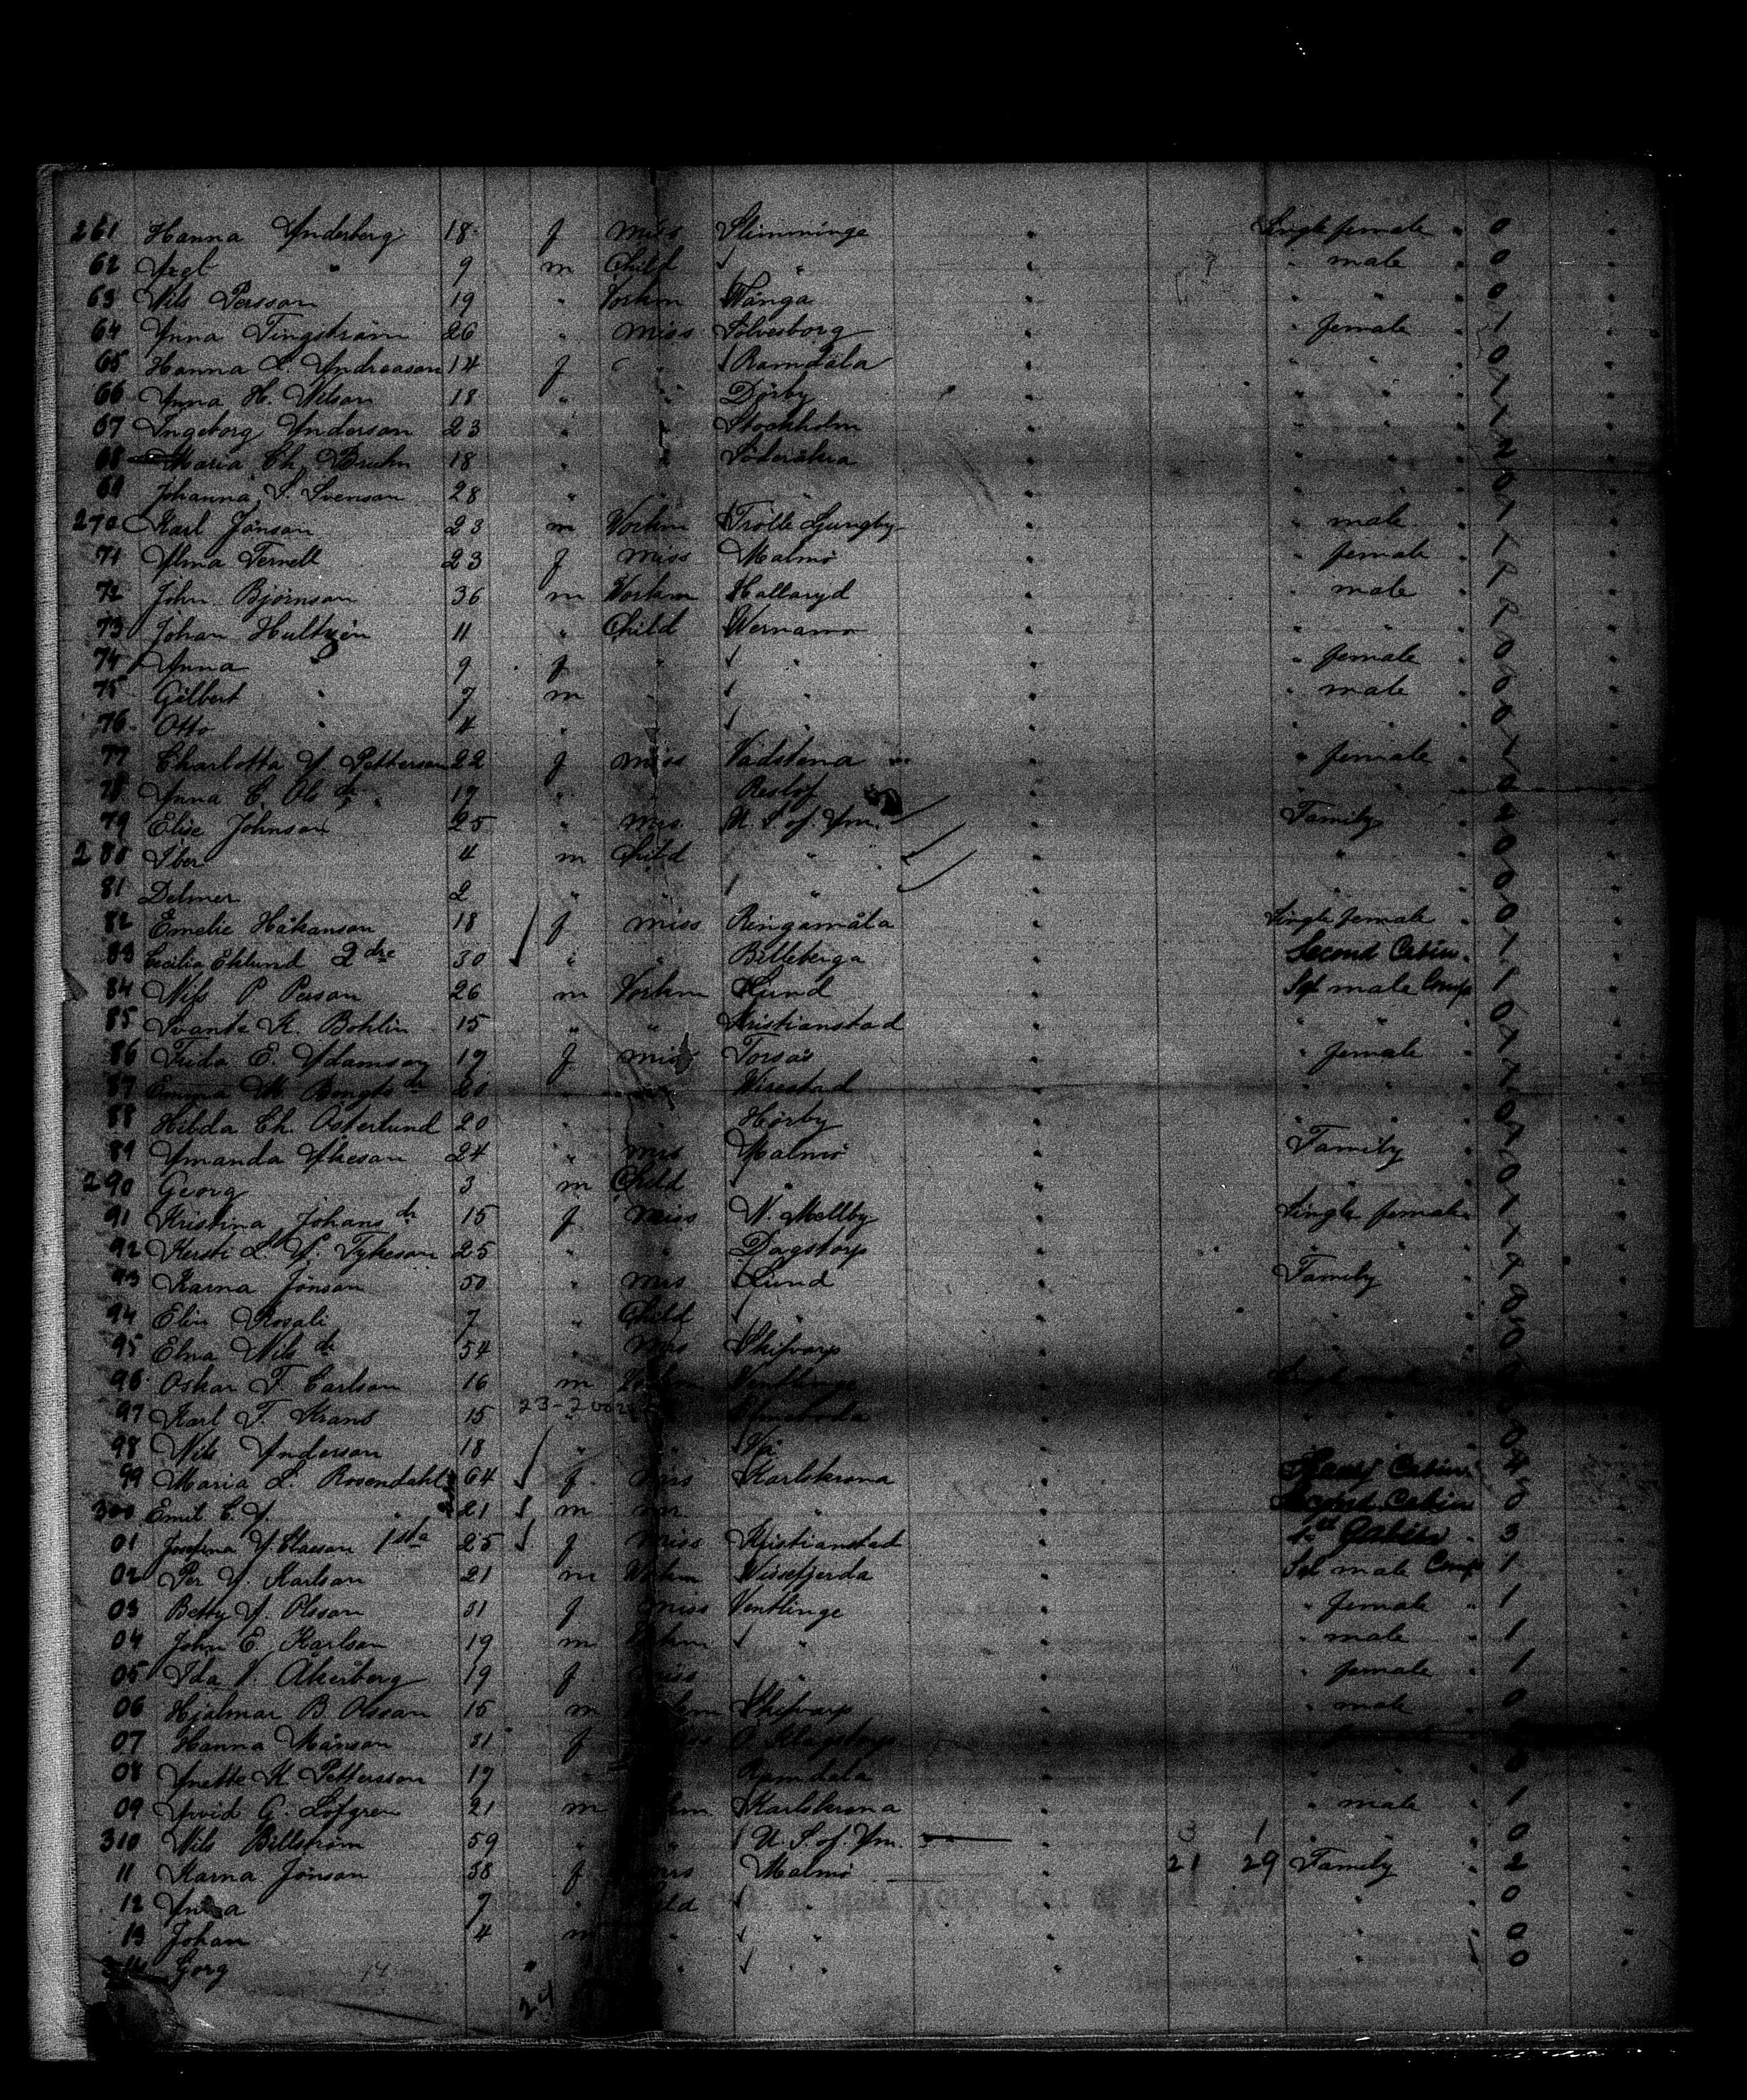 261 Hanna Anderberg 18 f miss Slimminge " Single female " 0
62 Axel " 9 m Child " " " male " 0
63 Nils Persson 19 " Workm Wånga " " " " 0
64 Anna Tingström 26 " miss Sölvesborg " " female " 1
65 Hanna L. Andreason 14 f " Ramdala " " " 0
66 Anna H. Nilson 18 " " Dörby " " " 1
67 Ingeborg Anderson 23 " " Stockholm " " " 1
68 Maria Ch. Bruhn 18 " " Söderåkra " " " 2
69 Johanna S. Svenson 28 " " " " " " 0
270 Karl Jönson 23 m Workm Trolle Ljungby " " male " 1
71 Alma Ternell 23 f miss Malmö " " female " 1
72 John Björnson 36 m Workm Hallaryd " " male " 1
73 Johan Hultgen 11 " Child Wernamo " " " "
74 Anna " 9 f " " " " female " 0
75 Gilbert " 7 m " " " " male " 0
76 Otto " 4 " " " " " " " 0
77 Charlotta A. Petterson 22 f miss Vadstena " " female " 1
78 Anna C. Ols dr 17 " " " " " 0
79 Elise Johnson 25 " mrs. U. S. of Am. " Family " 2
280 Iber 4 m Child " " " " 0
81 Delmer 2 " " " " " " 0
82 Emelie Håkanson 18 f miss Ringamåla " Single female " 0
83 Cecilia Eklund 2 dre 30 " " Billeberga " Second Cabin " 1
84 Nils P. Person 26 m Workm Lund " Sgl male Comp 1
85 Svante K. Bohlin 15 " " Kristianstad " " " 0
86 Frida E. Adamson 17 f miss Torsås " " female " 1
87 Emma M. Bengts dr 20 " " Wirestad " " " 1
88 Hilda Ch. Osterlund 20 " " Hörby " " " 0
89 Amanda Åkeson 24 " mrs Malmö " Family " 1
290 Georg 3 m Child " " " " 0
91 Kristina Johans dr 15 f miss N. Mellby " Single female 1
92 Kersti L. A. Tykeson 25 " " Dagstorp " " " 1
93 Karna Jönson 50 " mrs Lund " Family " 1
94 Elin Rosali 7 " Child " " " " 0
95 Elna Nils dr 54 " mrs Skifvarp " " " 0
96 Oskar F. Carlson 16 m Workm Ventlinge "
97 Karl F. Krans 15 " " " "
98 Nils Anderson 18 " " " " " " 0
99 Maria L. Rosendahl 64 f mrs Karlskrona " Cabin 4
300 Emil C. A. 21 m " " Cabin 0
01 Josefina A. Claeson 1 sta 25 f miss Kristianstad " Cabin 3
02 Per A. Karlson 21 m Workm Wissefjerda " Sgl male Comp 1
03 Betty A. Olsson 31 f miss Ventlinge " " female " 1
04 John E. Karlson 19 m Workm " " " male " 1
05 Ida V. Åkerberg 19 f miss " " " female " 1
06 Hjalmar B. Olsson 15 m Workm Skifvarp " " male " 0
07 Hanna Månson 31 f miss " " female "
08 Anette K. Pettersson 17 " " Ramdala " " " 0
09 Arvid G. Löfgren 21 m Workm Karlskrona " " male " 1
310 Nils Billström 59 " " U. S. of Am. " 3 1 " " " 0
11 Karna Jönson 38 f mrs Malmö " 21 29 Family " 2
12 Anna 7 " Child " " " " 0
13 Johan 4 m " " " " " 0
314 Georg " " " " " " 0
24